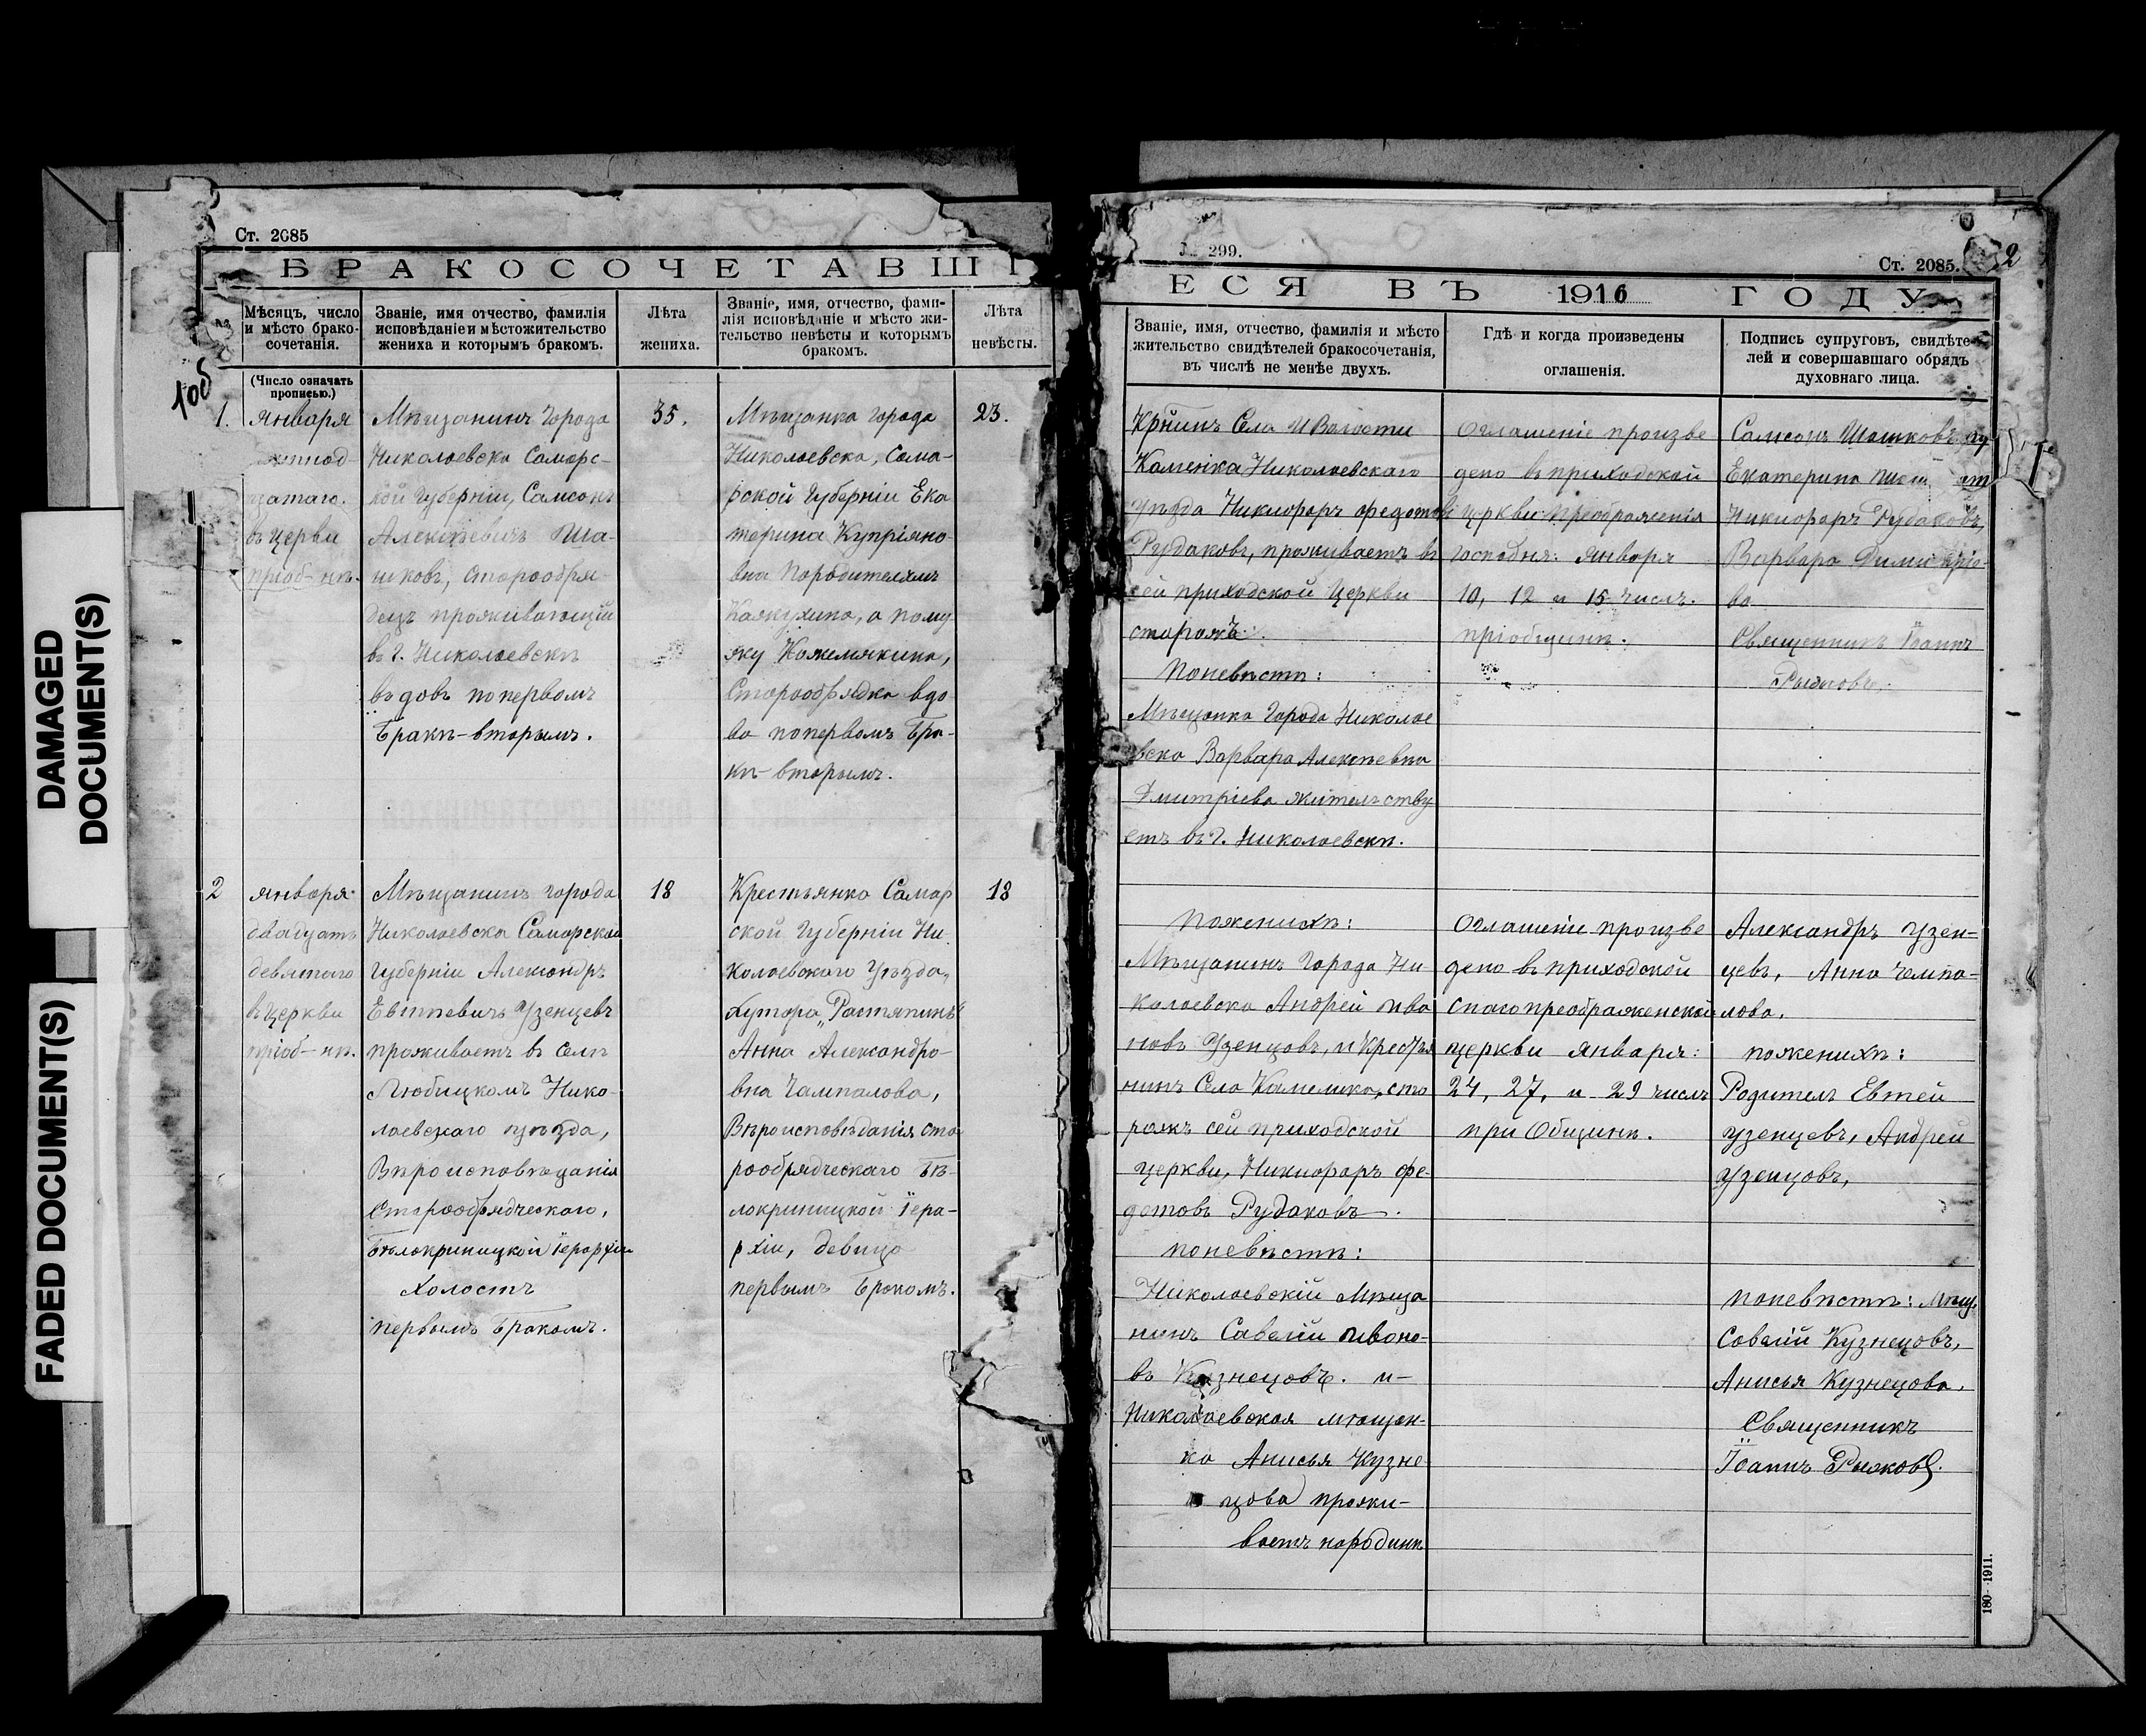 DAMAGED
DOCUMENT(S)
FADED DOCUMENT(S)
Ст. 2085
БРАКОСОЧЕТАВШІ
Мѣсяцъ, число
и мѣсто брако-
сочетанія.
Званіе, имя отчество, фамилія
исповѣданіе и мѣстожительство
жениха и которымъ бракомъ.
Лѣта
жениха.
Званіе, имя, отчество, фами-
лія исповѣданіе и мѣсто жи-
тельство невѣсты и которымъ
бракомъ.
Лѣта
невѣсты.
(Число означать
прописью.)
1об
1.
Января
цатаго.
въ церкви
пріоб-нѣ.
Мѣщанинъ города
Николаевска Самарс-
кой Губерніи, Самсонъ
Алексѣевичъ Ша-
шковъ, старообря-
децъ проживающій
въ г. Николаевскѣ
вдовъ по первомъ
бракѣ-вторымъ.
35.
Мѣщанка города
Николаевска, Сама-
рской Губерніи Ека
терина Купріяно-
вна по родителямъ
а по му
жу Кожемякина,
Старообрядка вдо
ва по первомъ бра-
кѣ-вторымъ.
23.
2
января
двадцать
девятаго
въ церкви
пріоб-нѣ.
Мѣщанинъ города
Николаевска Самарской
Губерніи Александръ
Евтѣевичъ Узенцевъ
проживаетъ въ селѣ
Любицкомъ Нико-
лаевскаго уѣзда,
Вѣроисповѣданія
Старообрядческаго,
Бѣлокриницкой Іерархіи
Холостъ
первымъ бракомъ.
18
Крестьянка Самар
ской Губерніи Ни-
колаевскаго уѣзда,
хутора „Растяпинъ“
Анна Александро-
вна Чампалова,
Вѣроисповѣданія ста
рообрядческаго Бѣ-
локриницкой Іера-
рхіи, девица
первымъ бракомъ.
18
№ 299.
Ст. 2085.
2
ЕСЯ ВЪ 1916 ГОДУ
Званіе, имя, отчество, фамилія и мѣсто
жительство свидѣтелей бракосочетанія,
въ числѣ не менѣе двухъ.
Гдѣ и когда произведены
оглашенія.
Подпись супруговъ, свидѣте-
лей и совершавшаго обрядъ
духовнаго лица.
Крнинъ Села и Волости
Каменка Николаевскаго
уѣзда Никифоръ Федотовъ
Рудаковъ, проживаетъ въ
сей приходской Церкви
сторожъ.
По невѣстѣ:
Мѣщанка города Николае
вска Варвара Алексѣевна
Дмитріева жительству
етъ въ г. Николаевскѣ.
Оглашеніе произве
дено въ приходской
церкви Преображенія
Господня: января
10, 12 и 15 числъ.
пріобщинѣ.
Самсонъ Шашковъ
Екатерина
Никифоръ Рудаковъ,
Варвара Дмитріе-
ва
Священникъ Іоаннъ
Рыжковъ.
По женихѣ:
Мѣщанинъ Города Ни
колаевска Андрей Ива
новъ Узенцовъ, и Крестья
нинъ Села Камелика, сто
рожъ сей приходской
церкви, Никифоръ Фе-
дотовъ Рудаковъ.
по невѣстѣ:
Николаевскій Мѣща
нинъ Савелій Ивано-
въ Кузнецовъ. и-
Николаевская мѣщан-
ка Анисья Кузне
цова прожи-
ваетъ
Оглашеніе произве
дено въ приходской
Спасопреображенской
церкви января:
24, 27, и 29 числъ
при Общинѣ.
Александръ Узен-
цевъ, Анна Чемпа-
лова.
по женихѣ:
Родитель Евтей
Узенцевъ, Андрей
Узенцовъ,
по невѣстѣ: Мѣщ.
Савелій Кузнецовъ,
Анисья Кузнецова.
Священникъ
Іоаннъ Рыжковъ.
180-1911.